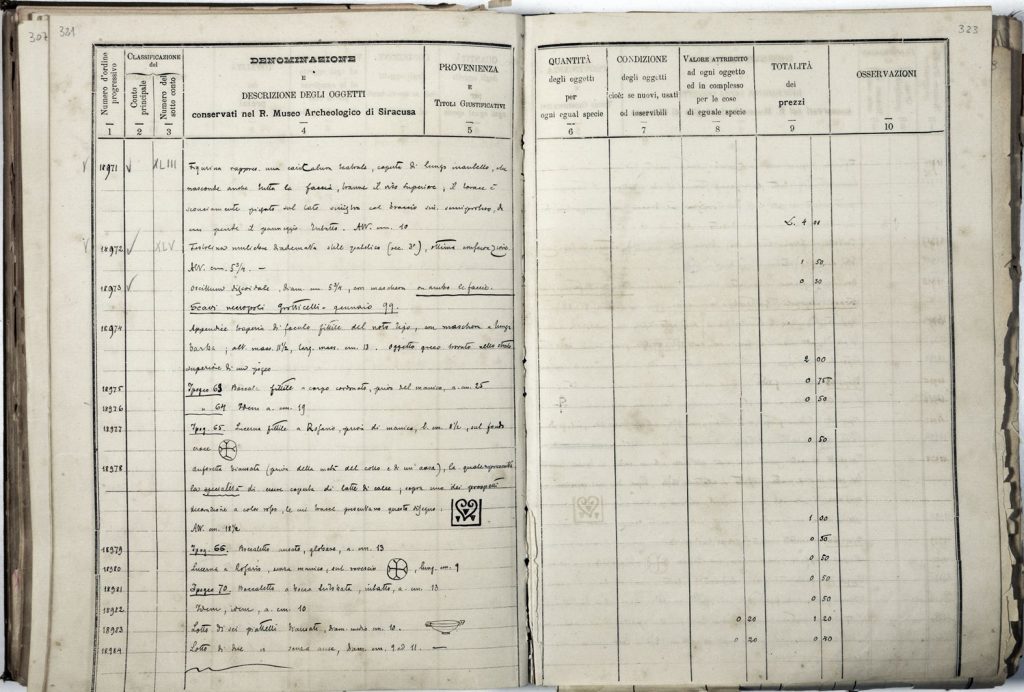 307 321
323
Numero d'ordine progressivo
CLASSIFICAZIONE del
Conto principale
Numero del sotto conto
DENOMINAZIONE
E
DESCRIZIONE DEGLI OGGETTI
conservati nel R. Museo Archeologico di Siracusa
PROVENIENZA
E
TITOLI GIUSTIFICATIVI
QUANTITÀ
degli oggetti
per
ogni egual specie
CONDIZIONE
degli oggetti
cioè: se nuovi, usati
od inservibili
VALORE ATTRIBUITO
ad ogni oggetto
ed in complesso
per le cose
di eguale specie
TOTALITÀ
dei
prezzi
OSSERVAZIONI
1 2 3 4 5 6 7 8 9 10
18971 XLIII Figurina rappres. una caricatura teatrale, coperta di lungo mantello, che
nasconde anche tutta la faccia, tranne il viso superiore; il torace è
sconciamente piegato sul lato sinistro col braccio sin. semiproteso, di
Alt. cm. 10 L. 4 00
18972 XLV Testolina muliebre diademata (sec. V°), ottima conservazione
Alt. cm. 5 3/4. — 1 50
18973 Oscillum discoidale, diam. cm 5 3/4, con maschera on ambo le faccie. 0 30
Scavi necropoli Grotticelli - gennaio 99.
18974 Appendice di focolo fittile del noto tipo, con maschera a lunga
barba; alt. mass. 11 1/2, larg. mass. cm. 13. Oggetto greco trovato nello strato
superiore di un ipogeo 2 00
18975 Ipogeo 63 Boccale fittile a corpo cordonato, privo del manico, a. cm. 25 0 75
18976 " 64 Idem a. cm. 19 ? 0 50
18977 Ipog. 65. Lucerna fittile a Rosario, priva di manico, l. cm. 8 1/2, sul fondo
croce 0 50
18978 anforetta ansata (priva della metà del collo e di un'ansa), la quale
la specialità di essere coperta di latte di calce; sopra uno dei prospetti
decorazione a color rosso, le cui tracce presentano questo disegno:
Alt. cm. 18 1/2 1 00
18979 Ipog. 66. Boccaletto ansato, globare, a. cm. 13 0 50
18980 Lucerna a Rosario, senza manico, sul rovescio , lung. cm. 9 0 50
18981 Ipogeo 70. Boccaletto a bocca trilobata, intatto, a. cm. 13 0 50
18982 Idem, idem, a. cm. 10 0 50
18983 Lotto di sei piattelli biansati, diam. medio cm. 10. 0 20 1 20
18984 Lotto di due " senza anse, diam. cm. 9 ed 11. — 0 20 0 40